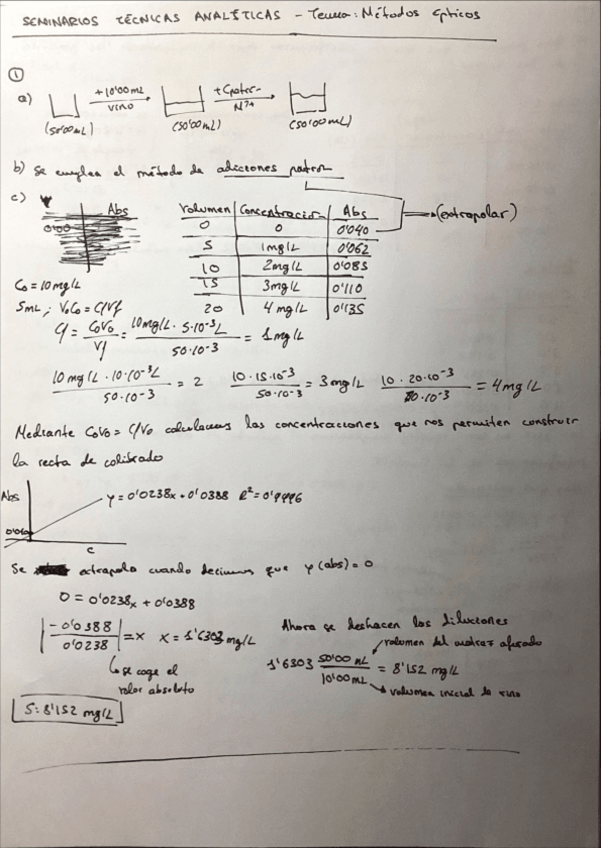 SEMINARIOS TÉCNICAS ANALÍTICAS - Tema: Métodos ópticos
①
a) +10'00mL vino + Cpatrón
(50'00mL) (50'00mL) (50'00mL)
b) Se emplea el método de adiciones patrón
c) Abs
Volumen | Concentración | Abs
0 | 0 | 0'040 → (extrapolar)
5 | 1mg/L | 0'062
10 | 2mg/L | 0'085
15 | 3mg/L | 0'110
20 | 4mg/L | 0'135
C₀ = 10mg/L
5mL; V₀C₀ = CfVf
Cf = C₀V₀/Vf = 10mg/L · 5·10⁻³L / 50·10⁻³ = 1mg/L
10mg/L · 10·10⁻³L / 50·10⁻³ = 2 10·15·10⁻³ / 50·10⁻³ = 3mg/L 10·20·10⁻³ / 50·10⁻³ = 4mg/L
Mediante C₀V₀ = calculamos las concentraciones que nos permiten construir
la recta de calibrado
Abs
y = 0'0238x + 0'0388 R² = 0'9996
C
Se extrapola cuando decimos que y(abs) = 0
0 = 0'0238x + 0'0388
|-0'0388 / 0'0238| = x x = 1'6303 mg/L
se coge el
valor absoluto
Ahora se deshacen las diluciones
volumen del matraz aforado
1'6303 50'00 mL / 10'00 mL = 8'152 mg/L
volumen inicial de vino
S: 8'152 mg/L